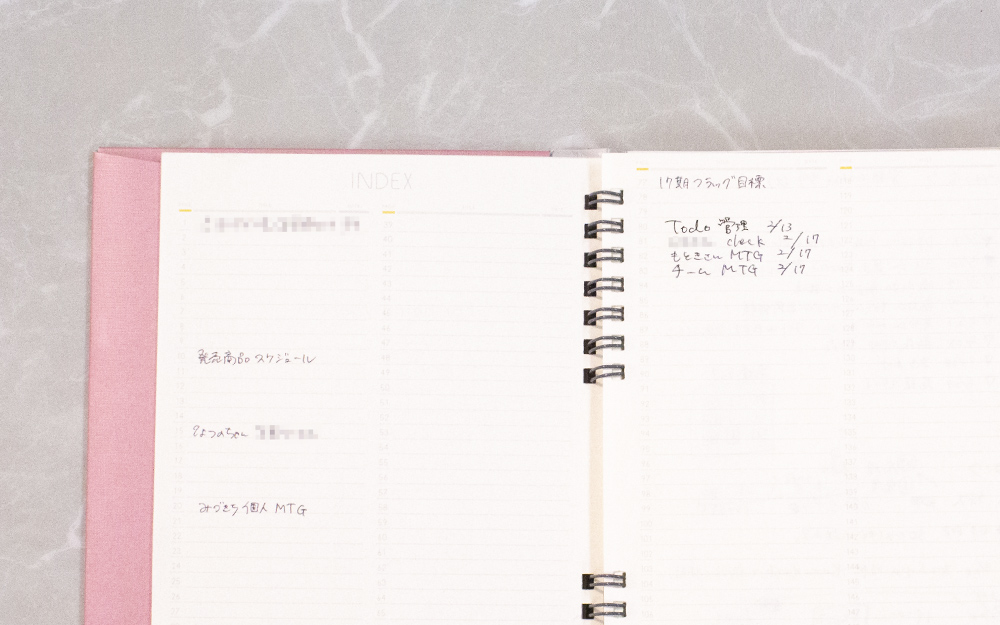 INDEX
スケジュール
みづきち個人 MTG
17期フラッグ目標
Todo 管理 2/13
check 2/17
もときさん MTG 2/17
チーム MTG 2/17